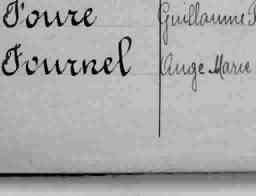 Foure Guillaume
Fournel Ange Marie